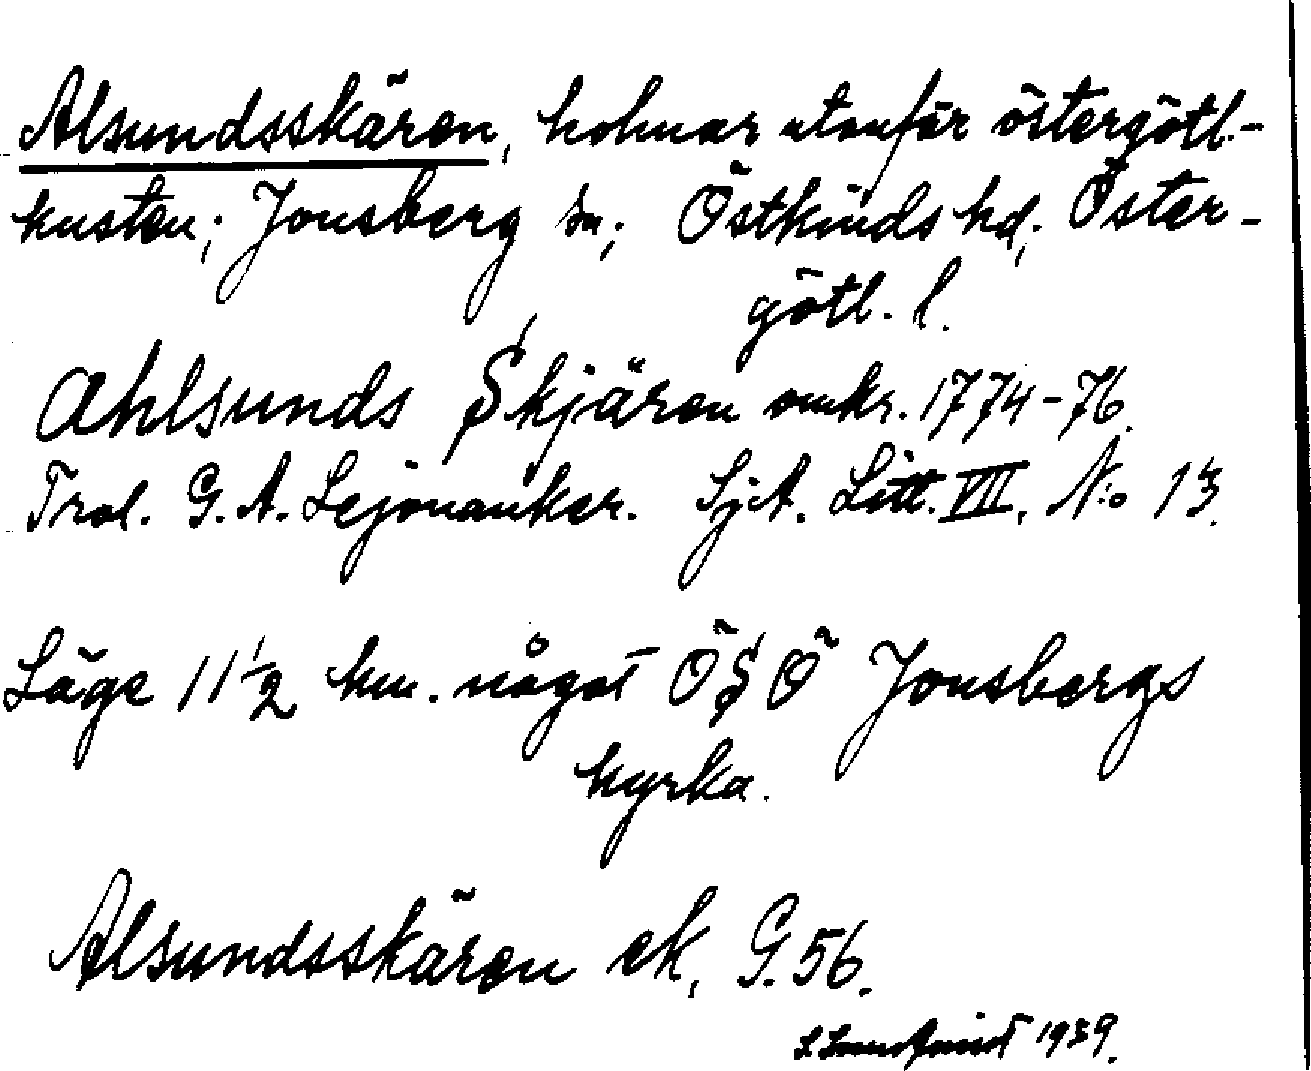 Alsundsskären, holmar utanför östergötl.-
kusten; Jonsberg sn; Östkinds hd; Öster-
götl. l.
Ahlsunds Skjären omkr. 1774-76.
Trol. G. A. Lejonanker. SjA. Litt. VII, No 13.
Läge 11 1/2 km. något ÖSÖ Jonsbergs
kyrka.
Alsundsskären ek, G. 56.
1939.